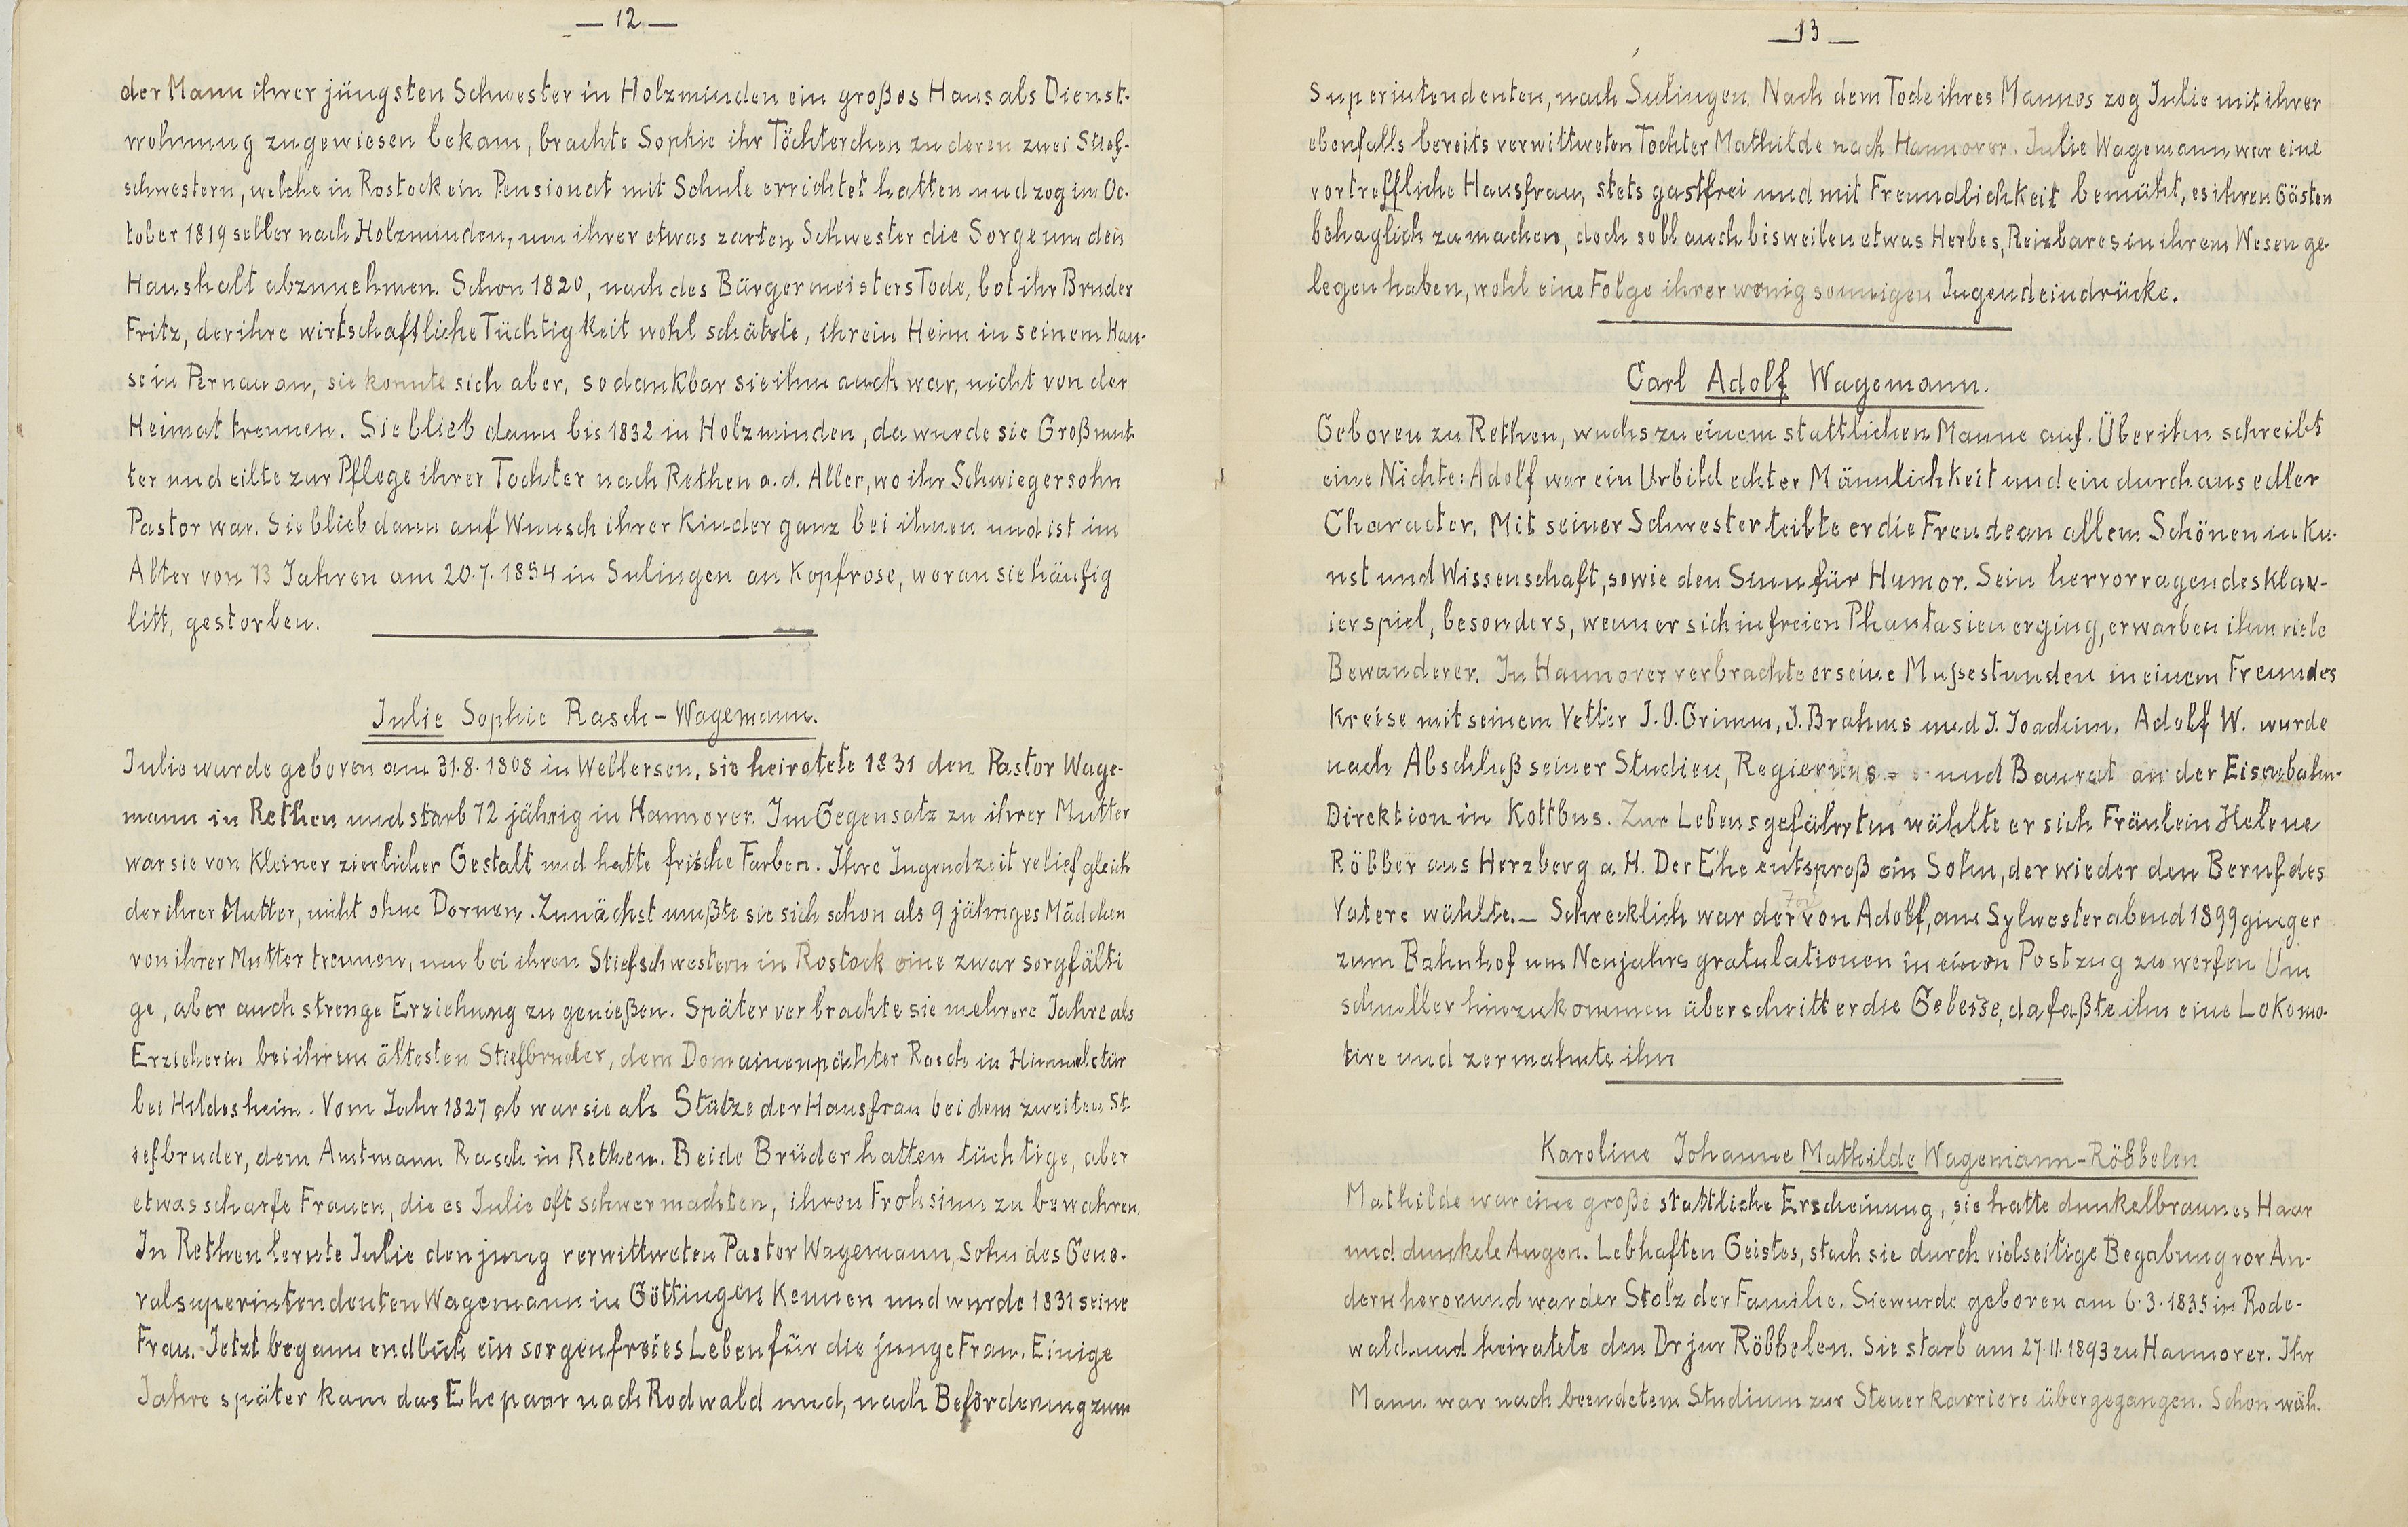 — 12 —
der Mann ihrer jüngsten Schwester in Holzminden ein großes Haus als Dienst-
wohnung zugewiesen bekam, brachte Sophie ihr Töchterchen zu deren zwei Stief-
schwestern, welche in Rostock ein Pensionat mit Schule errichtet hatten und zog im Oc-
tober 1819 selber nach Holzminden, um ihrer etwas zarten Schwester die Sorge um den
Haushalt abzunehmen. Schon 1820, nach des Bürgermeisters Tode, bot ihr Bruder
Fritz, der ihre wirtschaftliche Tüchtigkeit wohl schätzte, ihr ein Heim in seinem Hau-
se in Pernau an, sie konnte sich aber, so dankbar sie ihm auch war, nicht von der
Heimat trennen. Sie blieb dann bis 1832 in Holzminden, da wurde sie Großmut-
ter und eilte zur Pflege ihrer Tochter nach Rethen a.d. Aller, wo ihr Schwiegersohn
Pastor war. Sie blieb dann auf Wunsch ihrer Kinder ganz bei ihnen und ist im
Alter von 73 Jahren am 20.7.1854 in Sulingen an Kopfrose, woran sie häufig
litt, gestorben.
Julie Sophie Rasch - Wagemann.
Julie wurde geboren am 31.8.1808 in Wellersen, sie heiratete 1831 den Pastor Wage-
mann in Rethen und starb 72 jährig in Hannover. Im Gegensatz zu ihrer Mutter
war sie von kleiner zierlicher Gestalt und hatte frische Farben. Ihre Jugendzeit velief gleich
der ihrer Mutter, nicht ohne Dornen. Zunächst mußte sie sich schon als 9 jähriges Mädchen
von ihrer Mutter trennen, um bei ihren Stiefschwestern in Rostock eine zwar sorgfälti
ge, aber auch strenge Erziehung zu genießen. Später verbrachte sie mehrere Jahre als
Erzieherin bei ihrem ältesten Stiefbruder, dem Domainenpächter Rasch in Himmelstür
bei Hildesheim. Vom Jahr 1827 ab war sie als Stütze der Hausfrau bei dem zweiten St-
iefbruder, dem Amtmann Rasch in Rethen. Beide Brüder hatten tüchtige, aber
etwas scharfe Frauen, die es Julie oft schwer machten, ihren Frohsinn zu bewahren.
In Rethen lernte Julie den jung verwittweten Pastor Wagemann, Sohn des Gene-
ralsuperintendenten Wagemann in Göttingen kennen und wurde 1831 seine
Frau. Jetzt begann endlich ein sorgenfreies Leben für die junge Frau. Einige
Jahre später kam das Ehepaar nach Rodwald und, nach Beförderung zum
— 13 —
Superintendenten, nach Sulingen. Nach dem Tode ihres Mannes zog Julie mit ihrer
ebenfalls bereits verwittweten Tochter Mathilde nach Hannover. Julie Wagemann war eine
vortreffliche Hausfrau, stets gastfrei und mit Freundlichkeit bemüht, es ihren Gästen
behaglich zu machen, doch soll auch bisweilen etwas Herbes, Reizbares in ihrem Wesen ge-
legen haben, wohl eine Folge ihrer wenig sonnigen Jugendeindrücke.
Carl Adolf Wagemann.
Geboren zu Rethen, wuchs zu einem stattlichen Manne auf. Über ihn schreibt
eine Nichte: Adolf war ein Urbild echter Männlichkeit und ein durchaus edler
Character. Mit seiner Schwester teilte er die Freude an allem Schönen in Ku-
nst und Wissenschaft, sowie den Sinn für Humor. Sein hervorragendes Klav-
ierspiel, besonders, wenn er sich in freien Phantasien erging, erwarben ihm viele
Bewanderer. In Hannover verbrachte er seine Mußestunden in einem Freundes
kreise mit seinem Vetter J.O. Grimm, J. Brahms und J. Joachim. Adolf W. wurde
nach Abschluß seiner Studien, Regierungs- und Baurat an der Eisenbahn-
Direktion in Kottbus. Zur Lebensgefährten wählte er sich Fräulein Helene
Röbber aus Herzberg a. H. Der Ehe entsproß ein Sohn, der wieder den Beruf des
Vaters wählte. — Schrecklich war der Tod von Adolf, am Sylvesterabend 1899 ging er
zum Bahnhof um Neujahrsgratulationen in einen Postzug zu werfen Um
schneller hinzukommen überschritt er die Geleise, da faßte ihn eine Lokomo-
tive und zermalmte ihn
Karoline Johanne Mathilde Wagemann-Röbbelen
Mathilde war eine große stattliche Erscheinung, sie hatte dunkelbraunes Haar
und dunkele Augen. Lebhaften Geistes, stach sie durch vielseitige Begabung vor An-
dern heror und war der Stolz der Familie. Sie wurde geboren am 6.3.1835 in Rode-
wald und heiratete den Dr jur Röbbelen. Sie starb am 27.11.1893 zu Hannover. Ihr
Mann war nach beendetem Studium zur Steuerkarriere übergegangen. Schon wäh-